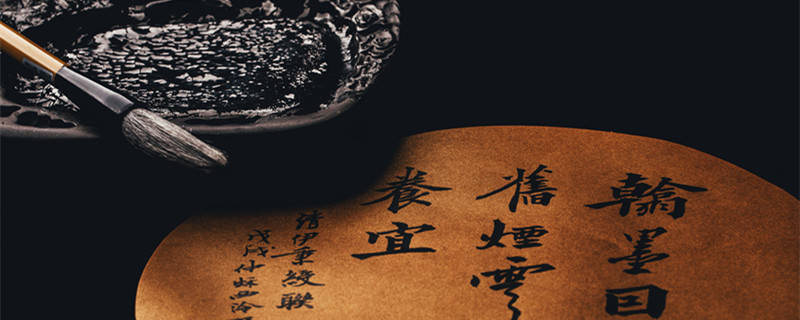 翰墨因
舊煙雲
養宜
清伊秉綬聯
戊戌仲秋西泠